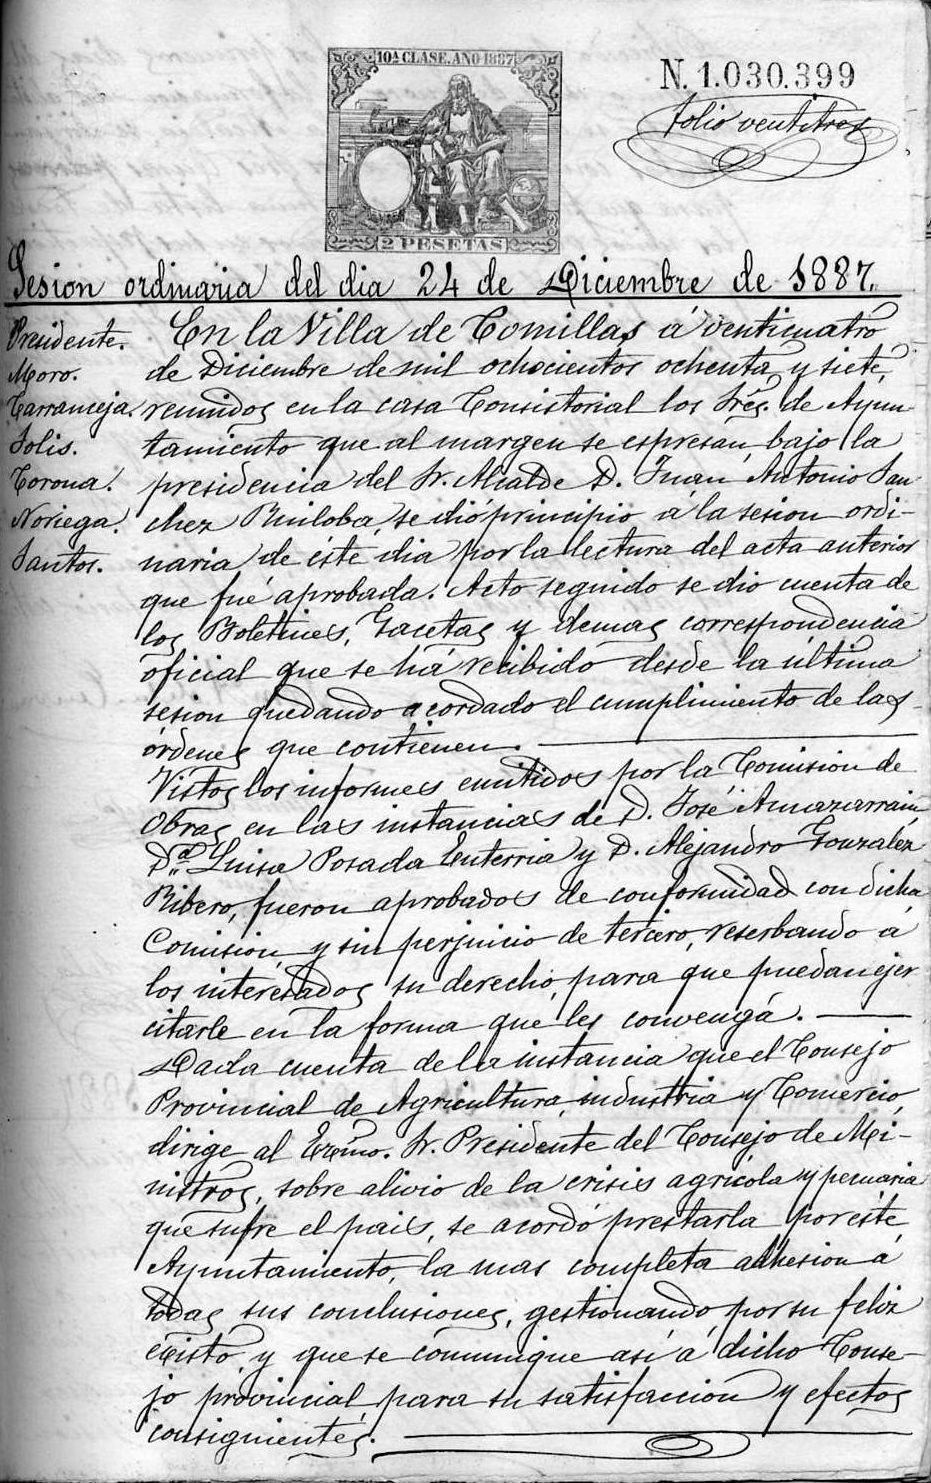 10ª CLASE. AÑO 1887
2 PESETAS
N. 1.030.399
folio ventitres
Sesion ordinaria del dia 24 de Diciembre de 1887.
Presidente.
Moro.
Tarranceja.
Solis.
Corona.
Noriega.
Santos.
En la Villa de Comillas á venticuatro
de Diciembre de mil ochocientos ochenta y siete,
reunidos en la casa Consistorial los Sres. de Ayun
tamiento que al margen se espresan, bajo la
presidencia del Sr. Alcalde D. Juan Antonio San
chez Ruiloba se dió principio á la sesion ordi-
naria de éste dia por la lectura del acta anterior
que fué aprobada. Acto seguido se dio cuenta de
los Boletines, Gacetas y demas correspondencia
oficial que se há recibido desde la última
sesion quedando acordado el cumplimiento de las
órdenes que contienen.
Vistos los informes emitidos por la Comision de
Obras en las instancias de D. José Amazarrain
Dª Luisa Posada Enterria y D. Alejandro Gonzalez
Ribero, fueron aprobados de conformidad con dicha
Comision, y sin perjuicio de tercero, reserbando á
los interesados su derecho, para que puedan ejer
citarle en la forma que les convenga.
Dada cuenta de la instancia que el Consejo
Provincial de Agricultura, industria y Comercio,
dirige al Excmo. Sr. Presidente del Consejo de Mi-
nistros, sobre alivio de la crisis agrícola y pecuaria
que sufre el pais, se acordó prestarla por este
Ayuntamiento, la mas completa adhesion á
todas sus conclusiones, gestionando por su feliz
éxisto, y que se comunique asi á dicho Conse-
jo provincial para su satisfaccion y efectos
consiguientes.